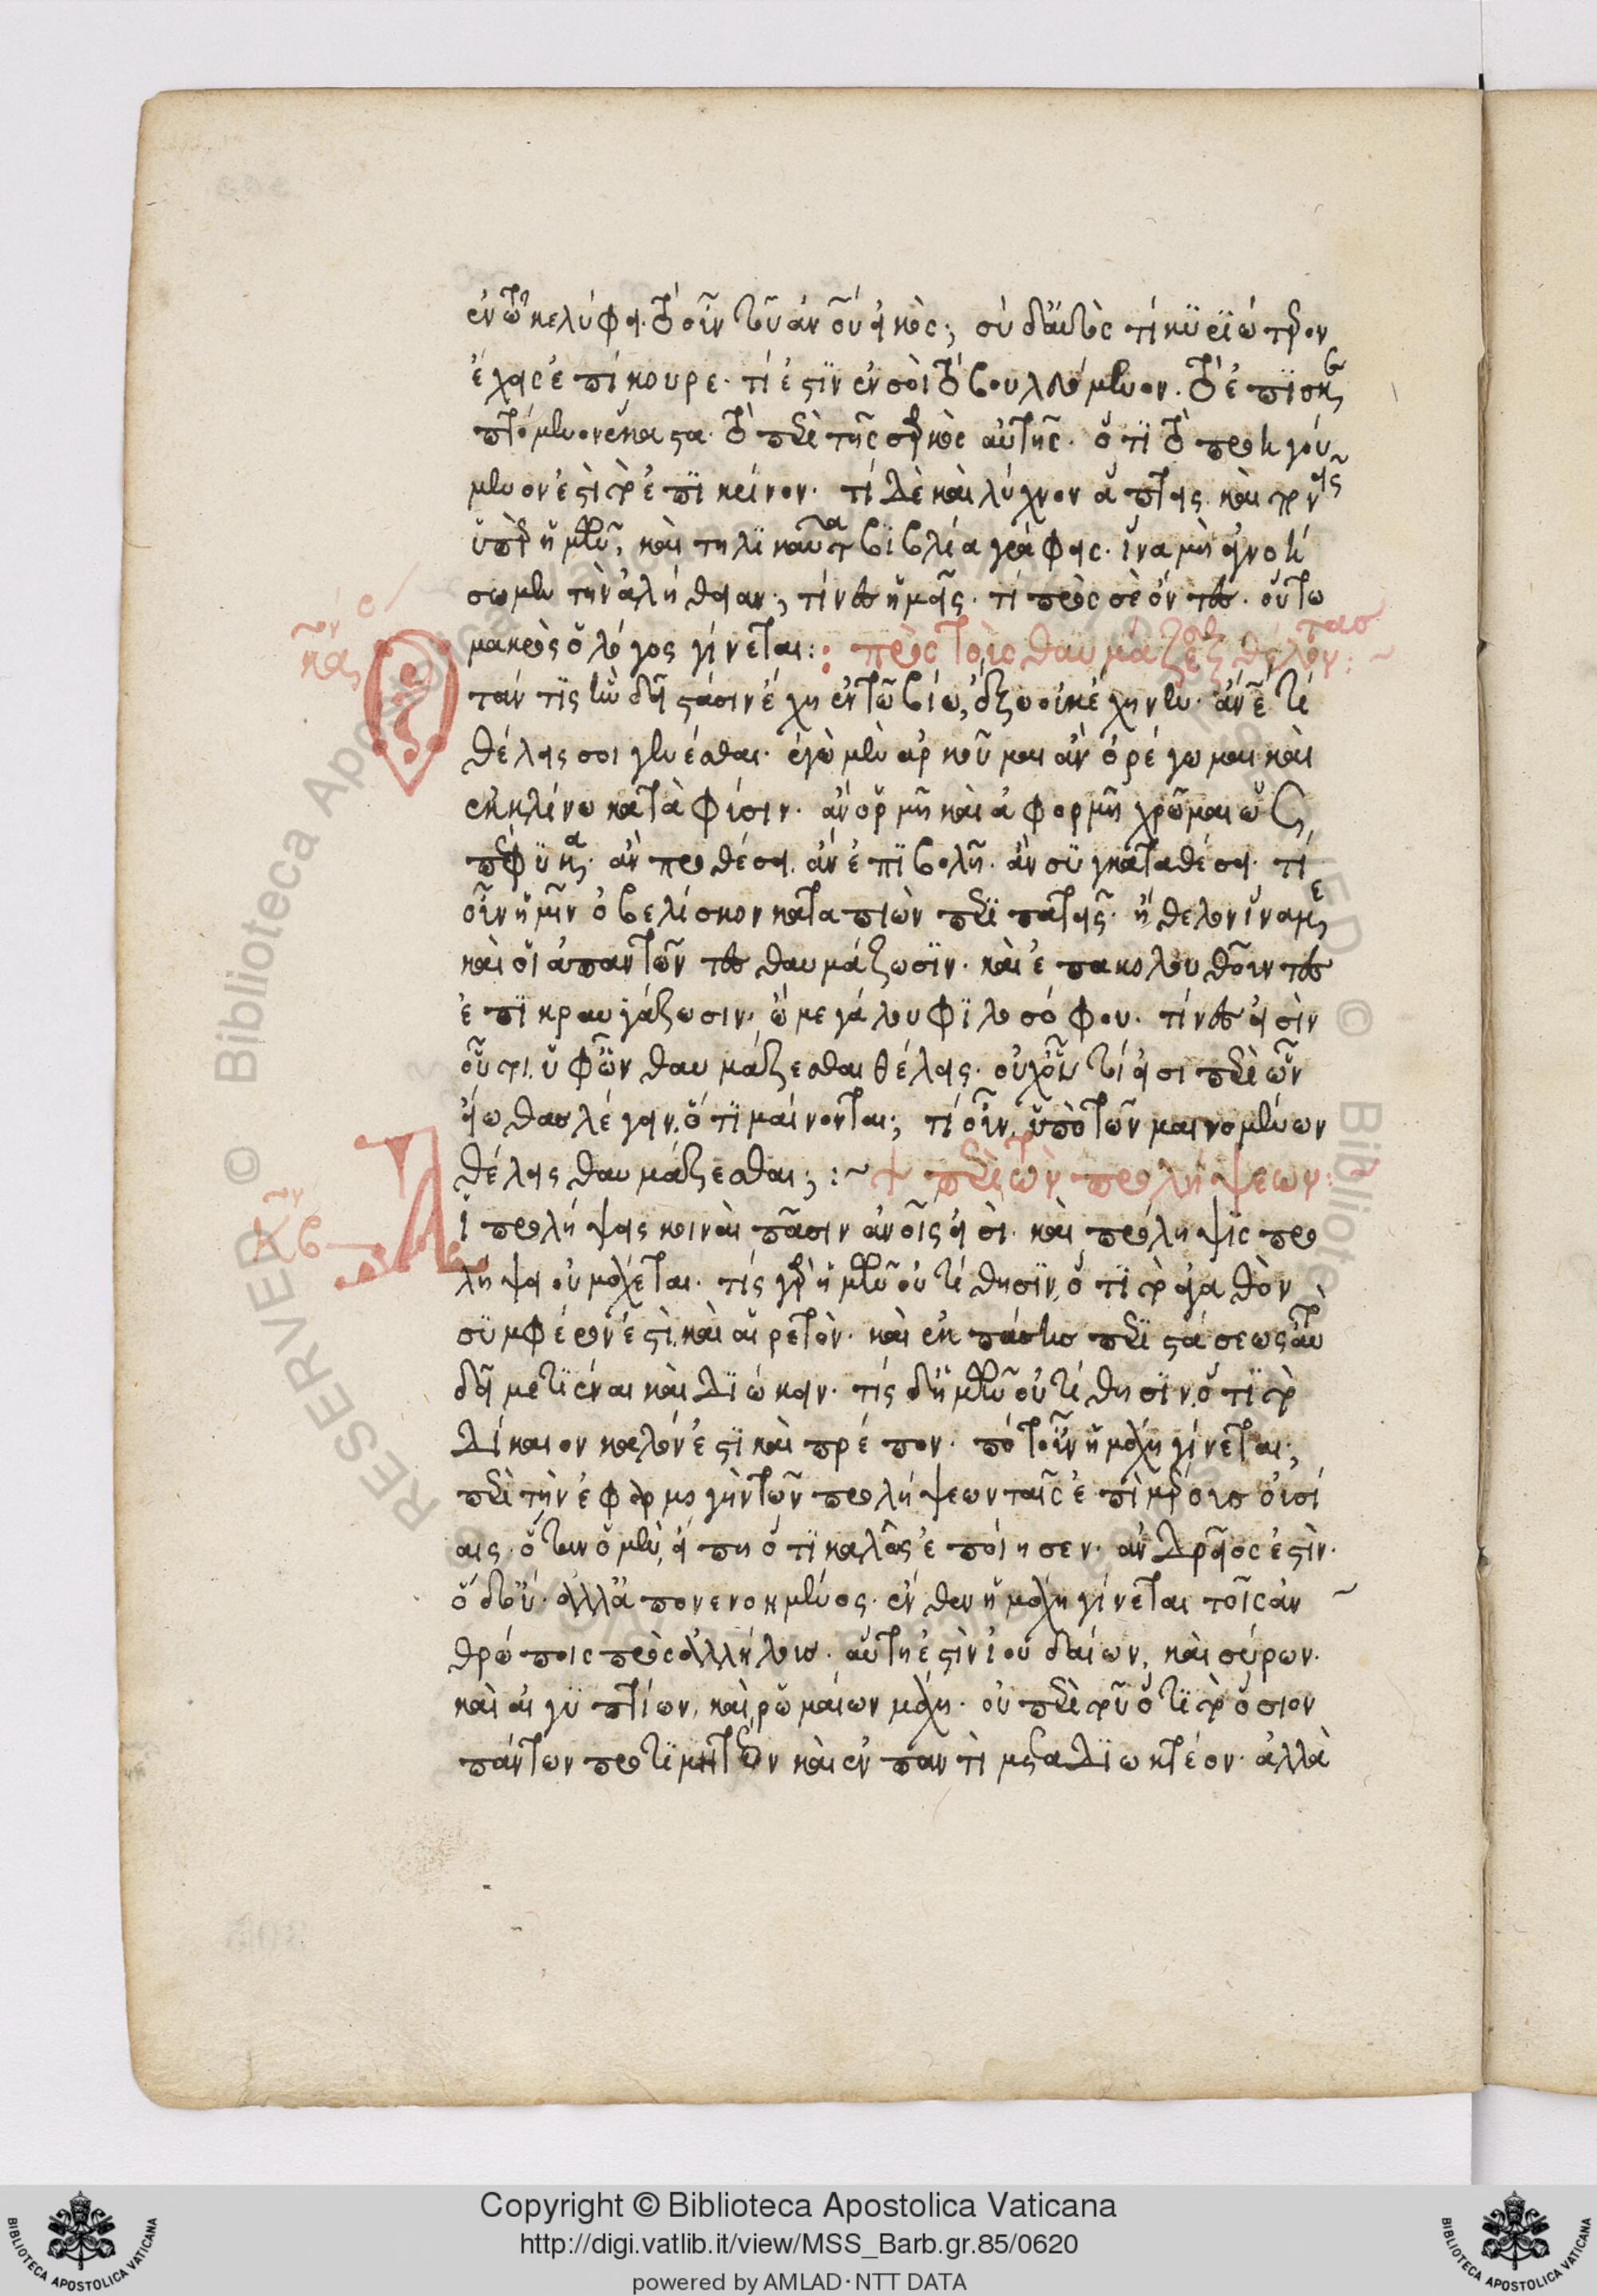 ἐν τῷ κελύφει· τὸ οὖν τοῦ ἀνθρώπου εἰκός; σὺ δ' αὐτὸς τί κυριώτερον
ἔχεις ἐπίκουρε· τί ἐστιν ἐν σοὶ τὸ βουλευόμενον· τὸ ἐπισκε
πτόμενον ἕκαστα· τὸ περὶ τῆς σαρκὸς αὐτῆς· ὅτι τὸ προηγού
μενον ἐστὶ τὸ ἐπικρίνον· τί δὲ καὶ λύχνον ἅπτεις καὶ πονεῖς
ὑπὲρ ἡμῶν, καὶ τηλικαῦτα βιβλία γράφεις· ἵνα μὴ ἀγνοή
σωμεν τὴν ἀλήθειαν; τίνες ἡμεῖς· τί πρὸς σὲ ὄντες· οὕτω
μακρὸς ὁ λόγος γίνεται: : πρὸς τοὺς θαυμάζεσθαι θέλοντας: ~
κα΄
Ὅταν τις ἣν δεῖ στάσιν ἔχῃ ἐν τῷ βίῳ, ἔξω οὐ κέχηνεν· ἄνθρωπε τί
θέλεις σοι γενέσθαι· ἐγὼ μὲν ἀρκοῦμαι ἂν ὀρέγωμαι καὶ
ἐκκλίνω κατὰ φύσιν· ἂν ὁρμῇ καὶ ἀφορμῇ χρῶμαι ὡς
πέφυκα· ἂν προθέσει· ἂν ἐπιβολῇ· ἂν συγκαταθέσει· τί
οὖν ἡμῖν ὀβελίσκον καταπιὼν περιπατεῖς· ἤθελον ἵνα με
καὶ οἱ ἀπαντῶντες θαυμάζωσιν· καὶ ἐπακολουθοῦντες
ἐπικραυγάζωσιν· ὢ μεγάλου φιλοσόφου· τίνες εἰσὶν
οὗτοι ὑφ' ὧν θαυμάζεσθαι θέλεις· οὐχ οὗτοί εἰσι περὶ ὧν
εἴωθας λέγειν, ὅτι μαίνονται; τί οὖν, ὑπὸ τῶν μαινομένων
θέλεις θαυμάζεσθαι; : ~ + περὶ τῶν προλήψεων: ~
κβ
Αἱ προλήψεις κοιναὶ πᾶσιν ἀνθρώποις εἰσί· καὶ πρόληψις προ
λήψει οὐ μάχεται· τίς γὰρ ἡμῶν οὐ τίθησιν, ὅτι τὸ ἀγαθὸν
συμφέρον ἐστὶ καὶ αἱρετόν· καὶ ἐκ πάσης περιστάσεως αὐτὸ
δεῖ μετιέναι καὶ διώκειν· τίς δ' ἡμῶν οὐ τίθησιν, ὅτι τὸ
δίκαιον καλόν ἐστι καὶ πρέπον· πότ' οὖν ἡ μάχη γίνεται;
περὶ τὴν ἐφαρμογὴν τῶν προλήψεων ταῖς ἐπὶ μέρους οὐσί
αις· ὅταν ὁ μὲν, εἴπῃ ὅτι καλῶς ἐποίησεν· ἀνδρεῖός ἐστιν·
ὁ δ' οὔ· ἀλλ' ἀπονενοημένος· ἔνθεν ἡ μάχη γίνεται τοῖς ἀν
θρώποις πρὸς ἀλλήλους· αὕτη ἐστὶν ἰουδαίων, καὶ σύρων·
καὶ αἰγυπτίων, καὶ ῥωμαίων μάχη· οὐ περὶ τοῦ ὅτι τὸ ὅσιον
πάντων προτιμητέον καὶ ἐν παντὶ μεταδιωκτέον· ἀλλὰ
Copyright © Biblioteca Apostolica Vaticana
http://digi.vatlib.it/view/MSS_Barb.gr.85/0620
powered by AMLAD · NTT DATA